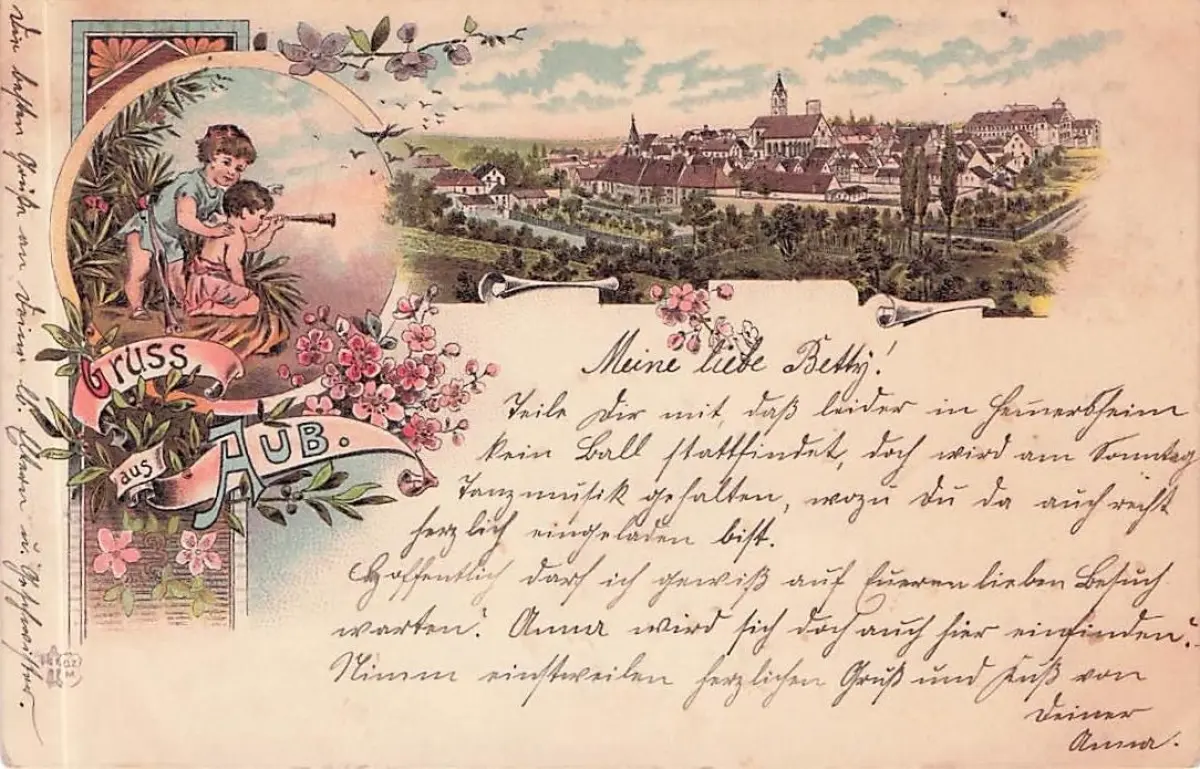 Gruss
aus
AUB.
Meine liebe Betty!
Teile Dir mit, daß leider in Hemmersheim
kein Ball stattfindet, doch wird am Sonntag
Tanzmusik gehalten, wozu Du da auch recht
herzlich eingeladen bist.
Hoffentlich darf ich gewiß auf Eueren lieben Besuch
warten? Anna wird sich doch auch hier einfinden?
Nimm einstweilen herzlichen Gruß und Kuß von
Deiner
Anna.
Die besten Grüße an Deine lb. Eltern u. Geschwister.